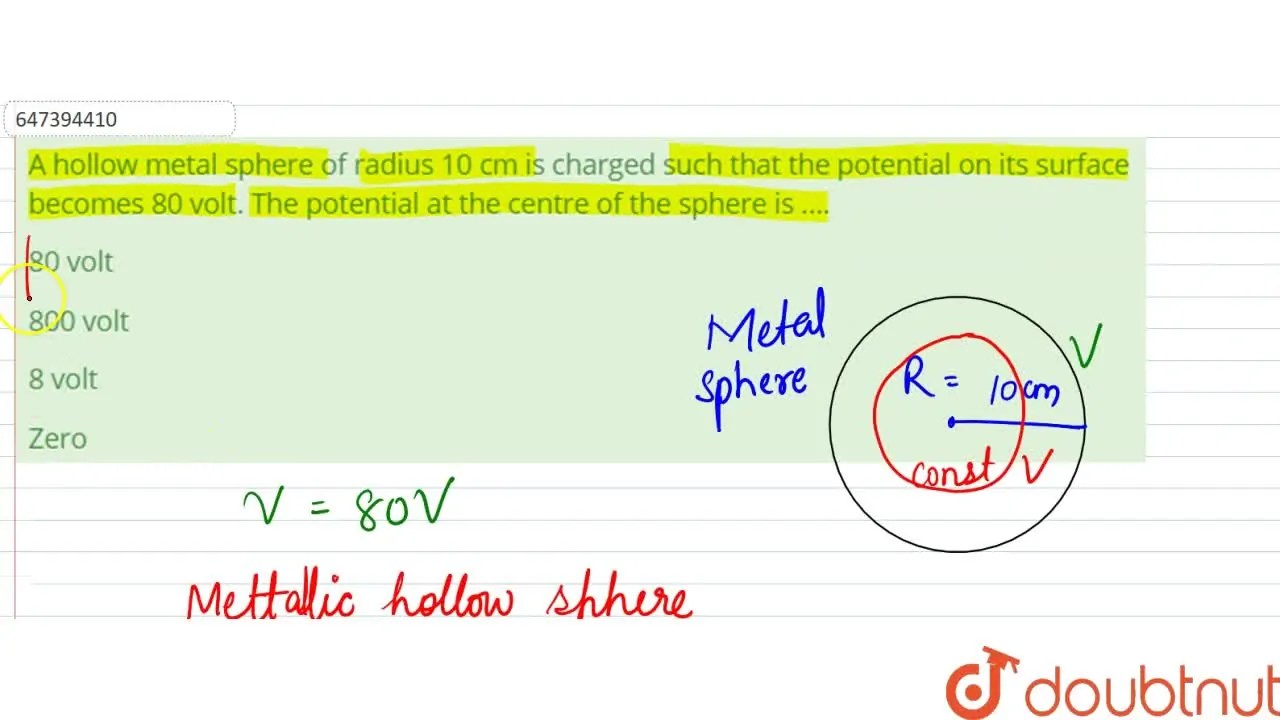 647394410
A hollow metal sphere of radius 10 cm is charged such that the potential on its surface
becomes 80 volt. The potential at the centre of the sphere is ....
80 volt
800 volt
8 volt
Zero
Metal
sphere
R = 10 cm
V
const V
V = 80V
Mettallic hollow shhere
doubtnut